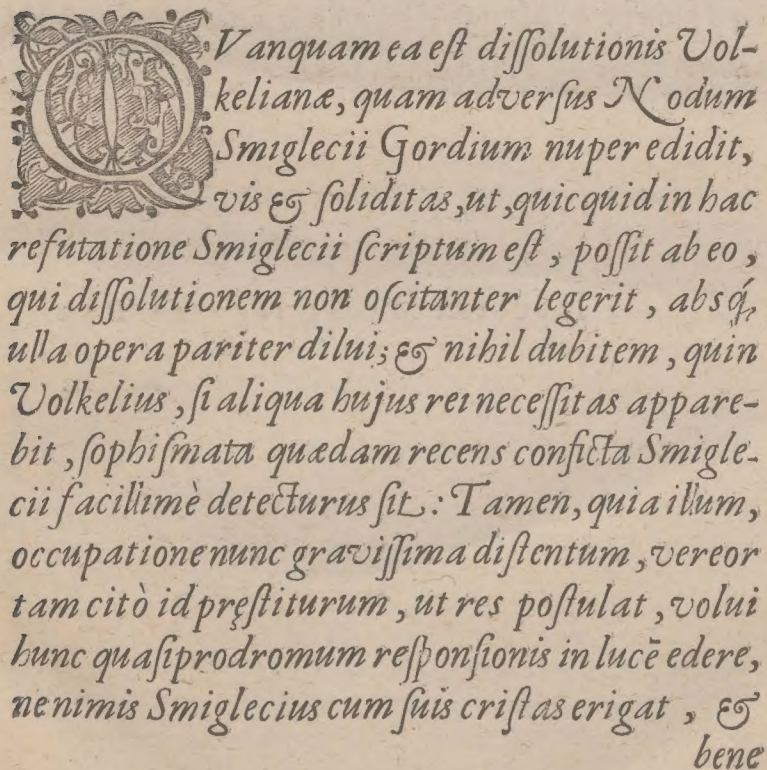 QVanquam ea eſt diſſolutionis Vol-
kelianæ, quam adverſus Nodum
Smiglecii Gordium nuper edidit,
vis & ſoliditas, ut, quicquid in hac
refutatione Smiglecii ſcriptum eſt, poſſit ab eo,
qui diſſolutionem non oſcitanter legerit, absq́;
ulla opera pariter dilui; & nihil dubitem, quin
Volkelius, ſi aliqua hujus rei neceſſitas appare-
bit, ſophiſmata quædam recens conficta Smigle-
cii facillimè detecturus ſit: Tamen, quia illum,
occupatione nunc graviſſima diſtentum, vereor
tam citò id pręſtiturum, ut res poſtulat, volui
hunc quaſi prodromum reſponſionis in lucē edere,
ne nimis Smiglecius cum ſuis criſtas erigat, &
bene